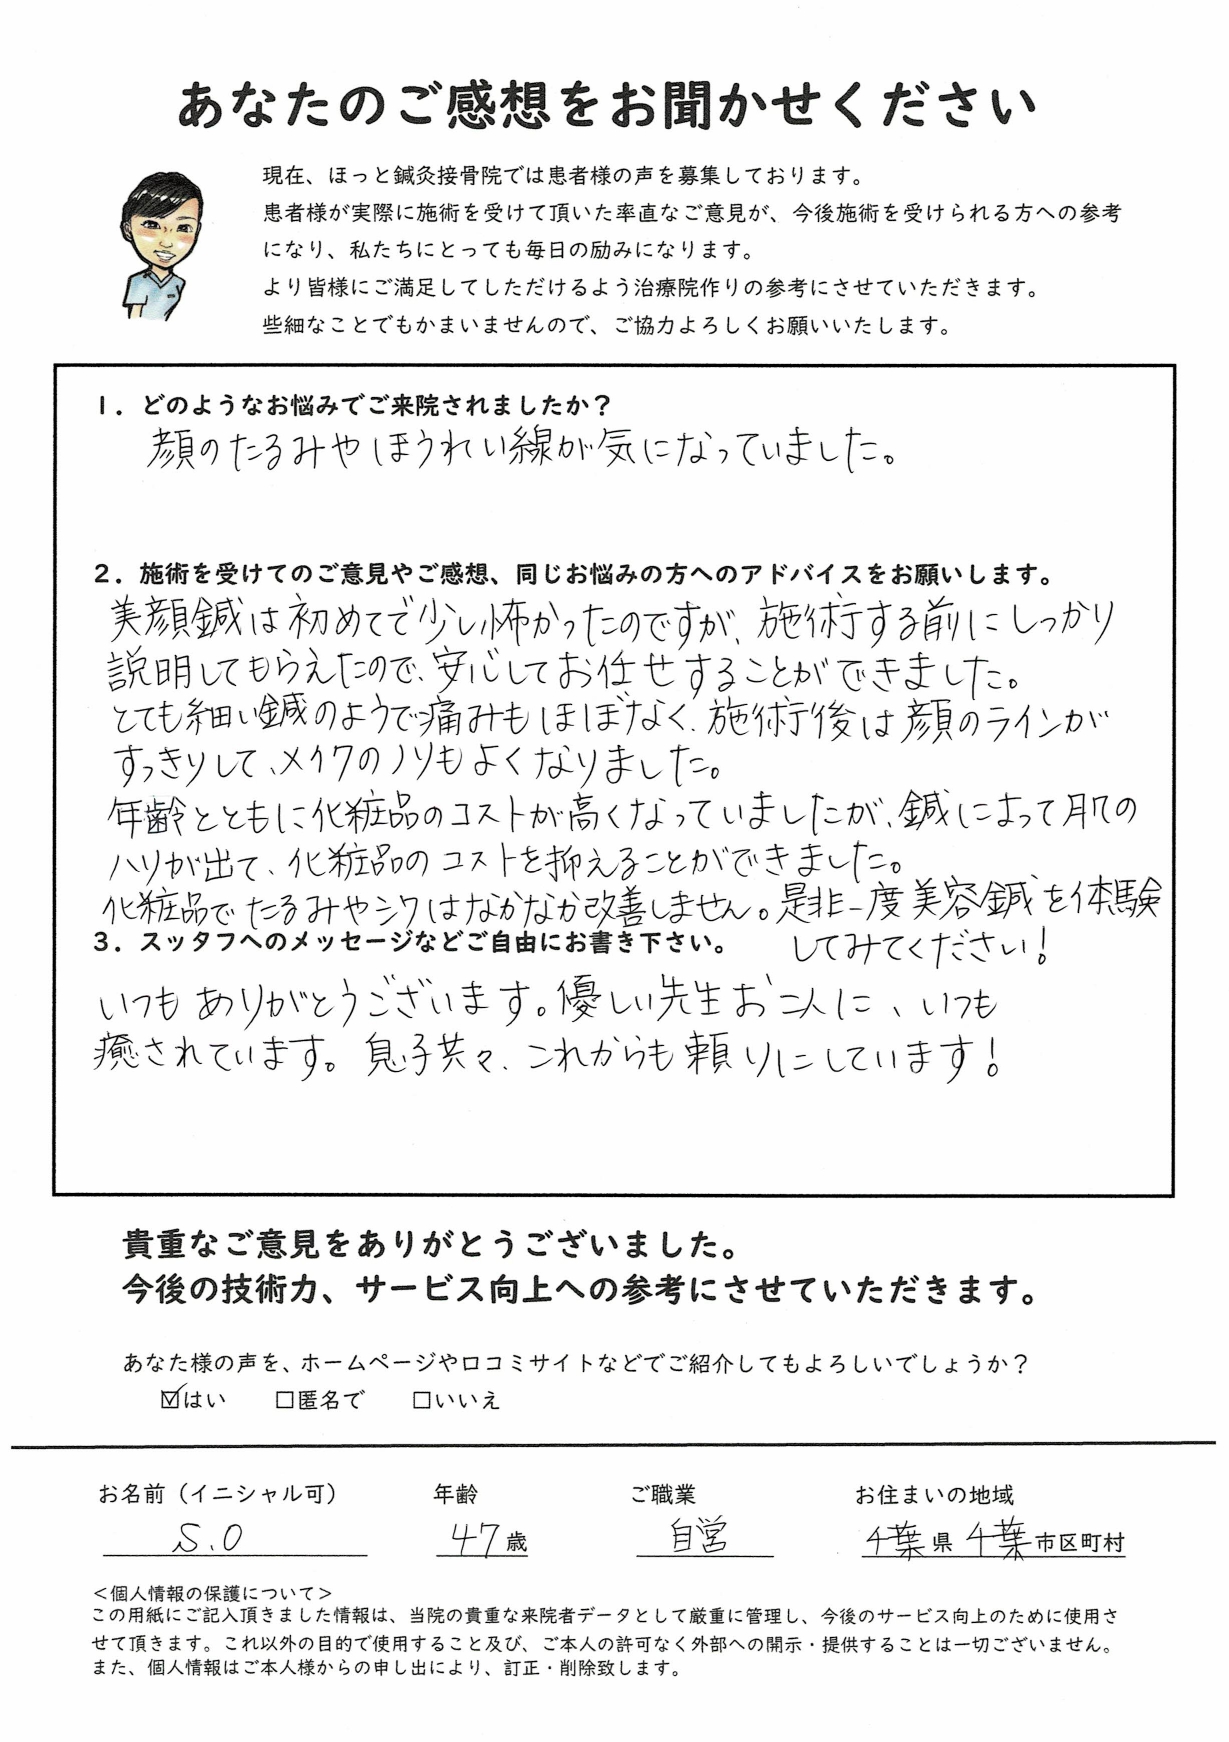 あなたのご感想をお聞かせください
現在、ほっと鍼灸接骨院では患者様の声を募集しております。
患者様が実際に施術を受けて頂いた率直なご意見が、今後施術を受けられる方への参考
になり、私たちにとっても毎日の励みになります。
より皆様にご満足してしただけるよう治療院作りの参考にさせていただきます。
些細なことでもかまいませんので、ご協力よろしくお願いいたします。
1．どのようなお悩みでご来院されましたか？
顔のたるみやほうれい線が気になっていました。
2．施術を受けてのご意見やご感想、同じお悩みの方へのアドバイスをお願いします。
美顔鍼は初めてで少し怖かったのですが、施術する前にしっかり
説明してもらえたので、安心してお任せすることができました。
とても細い鍼のようで痛みもほぼなく、施術後は顔のラインが
すっきりして、メイクのノリもよくなりました。
年齢とともに化粧品のコストが高くなっていましたが、鍼によって肌の
ハリが出て、化粧品のコストを抑えることができました。
化粧品でたるみやシワはなかなか改善しません。是非一度美容鍼を体験
してみてください！
3．スッタフへのメッセージなどご自由にお書き下さい。
いつもありがとうございます。優しい先生お二人に、いつも
癒されています。息子共々、これからも頼りにしています！
貴重なご意見をありがとうございました。
今後の技術力、サービス向上への参考にさせていただきます。
あなた様の声を、ホームページや口コミサイトなどでご紹介してもよろしいでしょうか？
☑はい ☐匿名で ☐いいえ
お名前（イニシャル可） 年齢 ご職業 お住まいの地域
S.O 47歳 自営 千葉県 千葉市区町村
＜個人情報の保護について＞
この用紙にご記入頂きました情報は、当院の貴重な来院者データとして厳重に管理し、今後のサービス向上のために使用さ
せて頂きます。これ以外の目的で使用すること及び、ご本人の許可なく外部への開示・提供することは一切ございません。
また、個人情報はご本人様からの申し出により、訂正・削除致します。